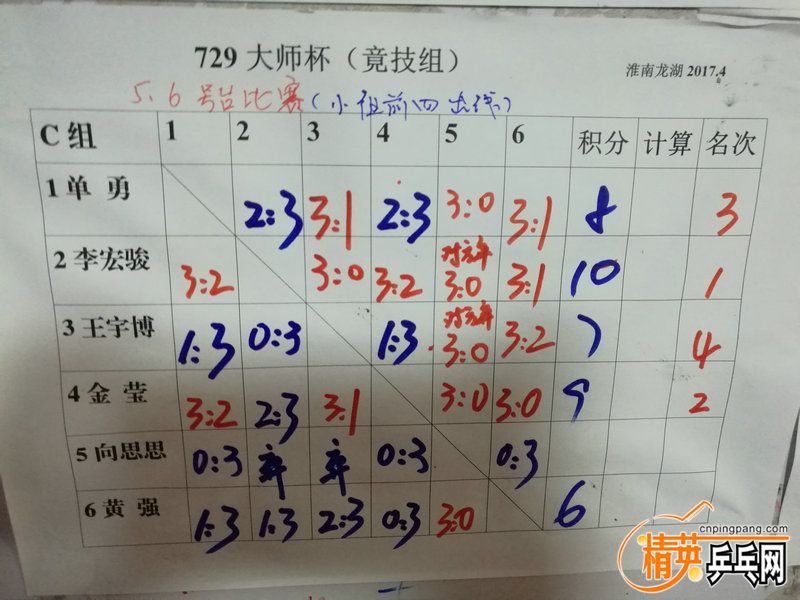 729 大师杯（竟技组）
淮南龙湖 2017.4
5.6号台比赛(小组前四出线)
C 组 1 2 3 4 5 6 积分 计算 名次
1 单 勇 2:3 3:1 2:3 3:0 3:1 8 3
2 李宏骏 3:2 3:0 3:2 对方弃 3:0 3:1 10 1
3 王宇博 1:3 0:3 1:3 对方弃 3:0 3:2 7 4
4 金 莹 3:2 2:3 3:1 3:0 3:0 9 2
5 向思思 0:3 弃 弃 0:3 0:3
6 黄 强 1:3 1:3 2:3 0:3 3:0 6
cnpingpang.com
精英乒乓网